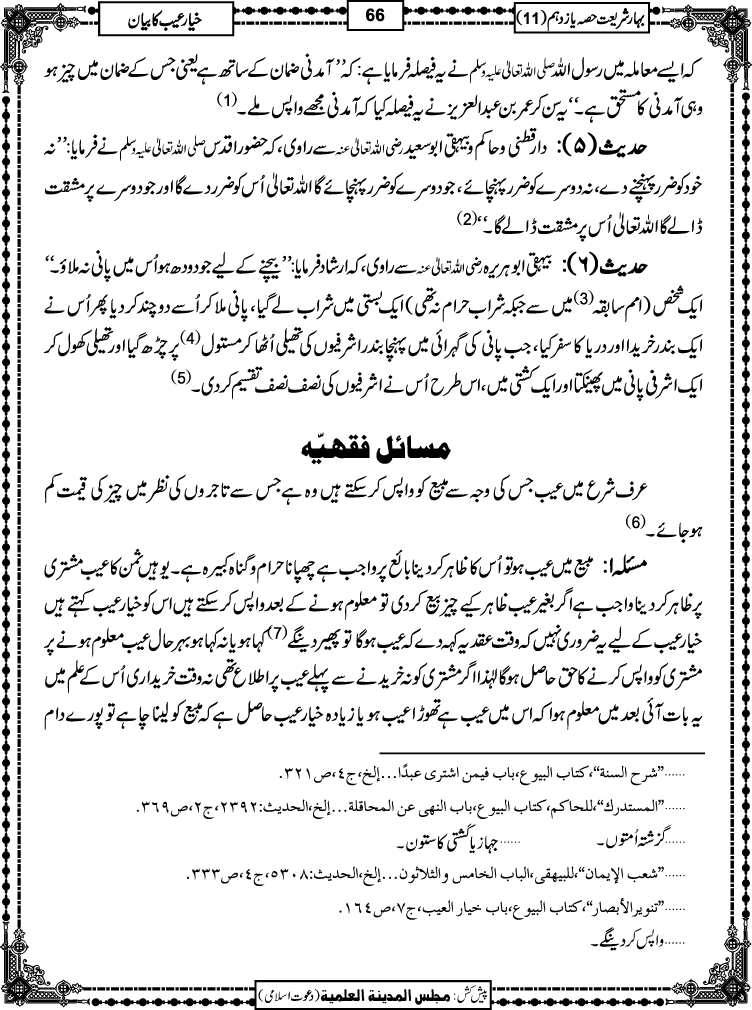 بہار شریعت حصہ یازدہم (11)
66
خیار عیب کا بیان
کہ ایسے معاملہ میں رسول اللہ صلی اللہ تعالیٰ علیہ وسلم نے یہ فیصلہ فرمایا ہے: کہ ’’آمدنی ضمان کے ساتھ ہے یعنی جس کے ضمان میں چیز ہو
وہی آمدنی کا مستحق ہے۔‘‘ یہ سن کر عمر بن عبدالعزیز نے یہ فیصلہ کیا کہ آمدنی مجھے واپس ملے۔(1)
حدیث (۵): دارقطنی و حاکم و بیہقی ابوسعید رضی اللہ تعالیٰ عنہ سے راوی، کہ حضور اقدس صلی اللہ تعالیٰ علیہ وسلم نے فرمایا: ’’نہ
خود کو ضرر پہنچنے دے، نہ دوسرے کو ضرر پہنچائے، جو دوسرے کو ضرر پہنچائے گا اللہ تعالیٰ اُس کو ضرر دے گا اور جو دوسرے پر مشقت
ڈالے گا اللہ تعالیٰ اُس پر مشقت ڈالے گا۔‘‘(2)
حدیث (۶): بیہقی ابوہریرہ رضی اللہ تعالیٰ عنہ سے راوی، کہ ارشاد فرمایا: ’’بیچنے کے لیے جو دودھ ہو اُس میں پانی نہ ملاؤ۔‘‘
ایک شخص (امم سابقہ(3) میں سے جبکہ شراب حرام نہ تھی) ایک بستی میں شراب لے گیا، پانی ملا کر اُسے دو چند کر دیا پھر اُس نے
ایک بندر خریدا اور دریا کا سفر کیا، جب پانی کی گہرائی میں پہنچا بندر اشرفیوں کی تھیلی اُٹھا کر مستول(4) پر چڑھ گیا اور تھیلی کھول کر
ایک اشرفی پانی میں پھینکتا اور ایک کشتی میں، اس طرح اُس نے اشرفیوں کی نصف نصف تقسیم کردی۔(5)
مسائل فقهیّه
عرف شرع میں عیب جس کی وجہ سے مبیع کو واپس کر سکتے ہیں وہ ہے جس سے تاجروں کی نظر میں چیز کی قیمت کم
ہو جائے۔(6)
مسئلہ ا: مبیع میں عیب ہو تو اُس کا ظاہر کر دینا بائع پر واجب ہے چھپانا حرام و گناہ کبیرہ ہے۔ یوہیں ثمن کا عیب مشتری
پر ظاہر کر دینا واجب ہے اگر بغیر عیب ظاہر کیے چیز بیع کردی تو معلوم ہونے کے بعد واپس کر سکتے ہیں اس کو خیار عیب کہتے ہیں
خیار عیب کے لیے یہ ضروری نہیں کہ وقت عقد یہ کہہ دے کہ عیب ہو گا تو پھیر دینگے(7) کہا ہو یا نہ کہا ہو بہر حال عیب معلوم ہونے پر
مشتری کو واپس کرنے کا حق حاصل ہو گا لہٰذا اگر مشتری کو نہ خریدنے سے پہلے عیب پر اطلاع تھی نہ وقت خریداری اُس کے علم میں
یہ بات آئی بعد میں معلوم ہوا کہ اس میں عیب ہے تھوڑا عیب ہو یا زیادہ خیار عیب حاصل ہے کہ مبیع کو لینا چاہے تو پورے دام
......”شرح السنة“،کتاب البیوع،باب فیمن اشتری عبدًا...إلخ،ج٤،ص٣٢١.
......”المستدرك“،للحاكم،كتاب البيوع،باب النهى عن المحاقلة...إلخ،الحديث:٢٣٩٢،ج٢،ص٣٦٩.
......گزشتہ اُمتوں۔ ......جہاز یا کشتی کا ستون۔
......”شعب الإيمان“،للبيهقى،الباب الخامس والثلاثون...إلخ،الحديث:٥٣٠٨،ج٤،ص٣٣٣.
......”تنوير الأبصار“،كتاب البيوع،باب خيار العيب،ج٧،ص١٦٤.
......واپس کر دینگے۔
پیش کش: مجلس المدينة العلمية (دعوت اسلامی)